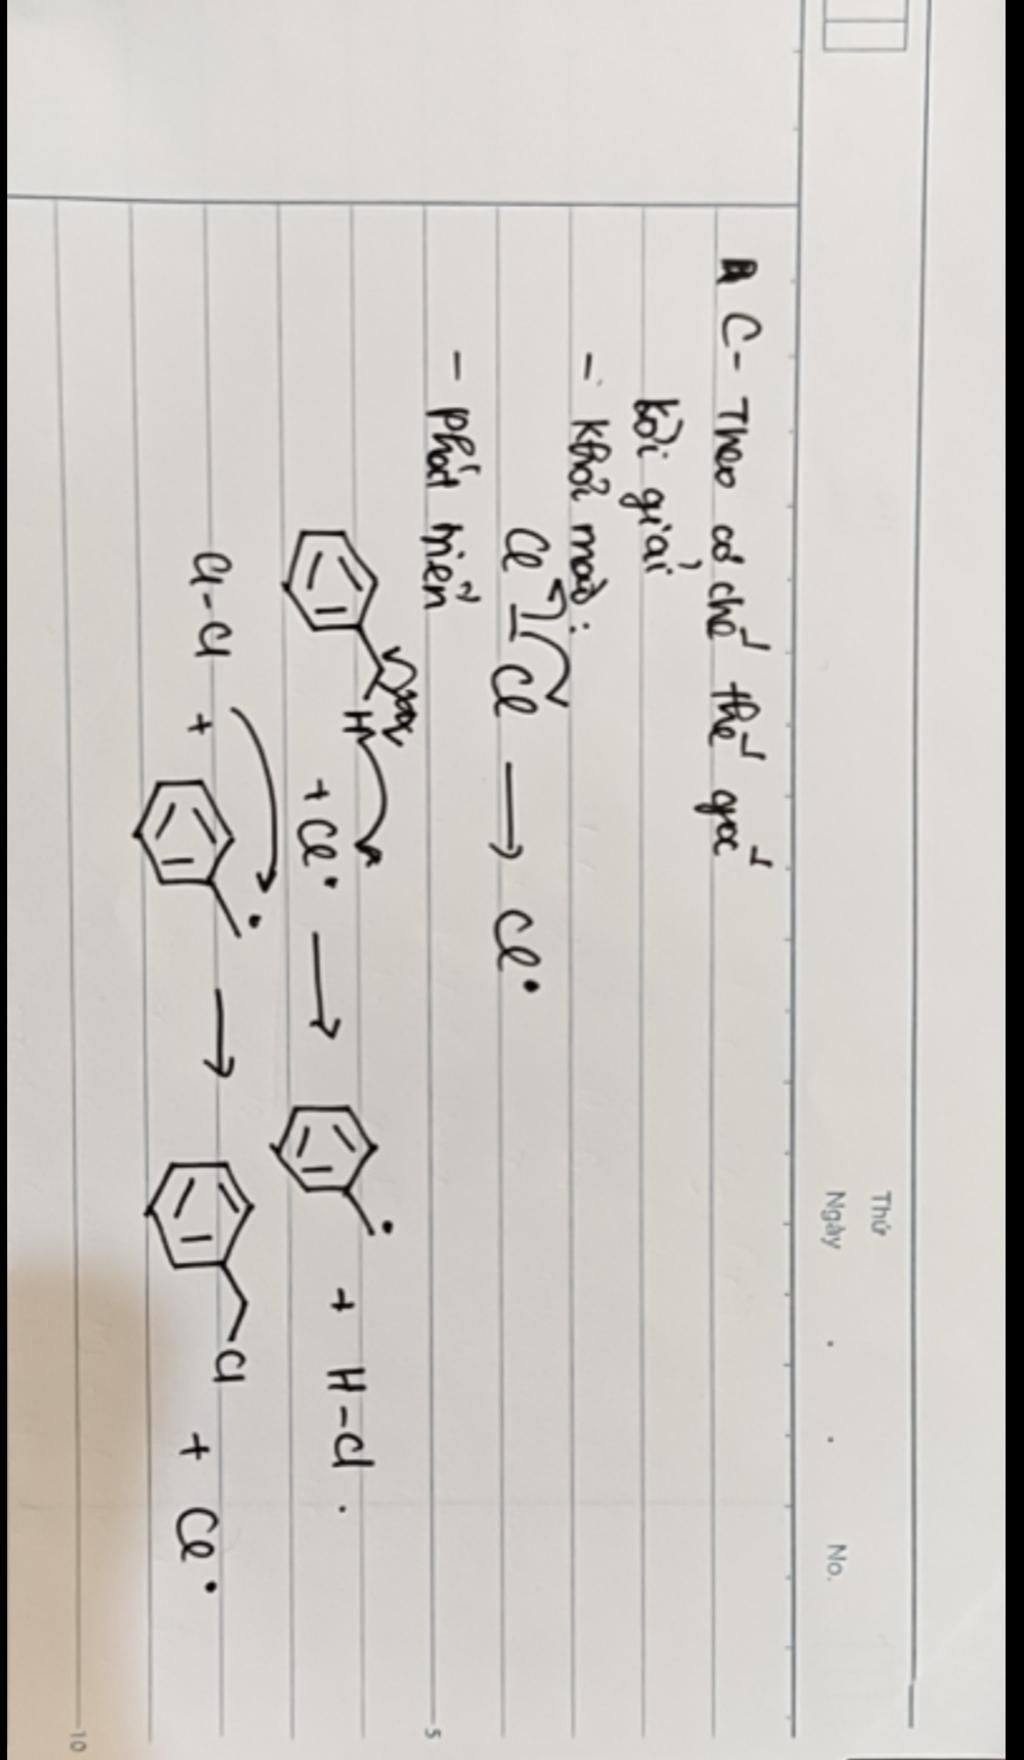 Thứ
Ngày . . No.
C- Theo cơ chế thế gốc
Lời giải
- Khơi mào:
Cl - Cl → Cl•
- Phát triển
H + Cl• → • + H-Cl.
Cl-Cl + • → Cl + Cl•
5
10